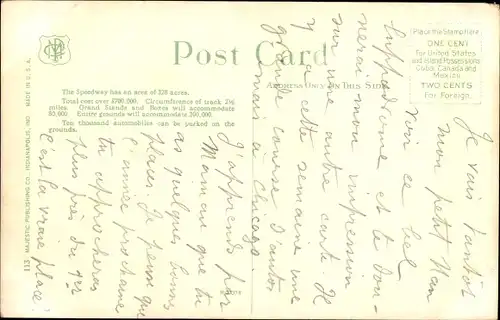 Post Card
ADDRESS ONLY ON THIS SIDE
Place the Stamp Here
ONE CENT
For United States
and Island Possessions
Cuba, Canada and
Mexico
TWO CENTS
For Foreign.
The Speedway has an area of 328 acres.
Total cost over $700,000. Circumference of track 2½
miles. Grand Stands and Boxes will accommodate
50,000. Entire grounds will accommodate 200,000.
Ten thousand automobiles can be parked on the
grounds.
113 MAJESTIC PUBLISHING CO., INDIANAPOLIS, IND. MADE IN U. S. A.
Je vais tantôt
mon petit Man
voir ce bel
hippodrome et te don-
nerai mon impression
sur une autre carte. Il
y a cette semaine une
grande course d'autos
mais à Chicago.
J'apprends par
Maman que tu
as quelques bonnes
places. Je pense que
l'année prochaine
tu approcheras
plus près du 1er
C'est la vraie place!